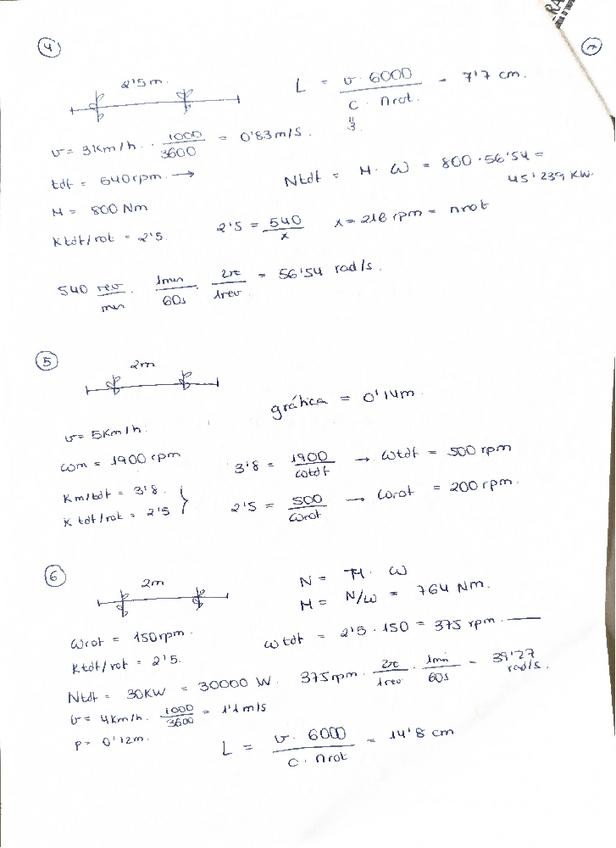 4
7
2'5m.
L = v · 6000 / c · nrot. = 7'7 cm.
3
v = 3Km/h · 1000/3600 = 0'83 m/s.
tdf = 540rpm. →
Ntdf = M · ω = 800 · 56'54 = 45'239 KW.
M = 800 Nm
Ktdf/rot = 2'5.
2'5 = 540/x x = 216 rpm = nrot
540 rev/min · 1min/60s · 2π/1rev = 56'54 rad/s.
5
2m
gráfica = 0'14m.
v = 5Km/h.
ωm = 1900 rpm
3'8 = 1900/ωtdf → ωtdf = 500 rpm
Km/tdf = 3'8.
K tdf/rot = 2'5 }
2'5 = 500/ωrot → ωrot = 200 rpm.
6
2m
N = M · ω
M = N/ω = 764 Nm.
ωrot = 150 rpm.
ωtdf = 2'5 · 150 = 375 rpm.
Ktdf/rot = 2'5.
Ntdf = 30KW = 30000 W.
375rpm · 2π/1rev · 1min/60s = 39'27 rad/s.
v = 4Km/h · 1000/3600 = 1'1 m/s
p = 0'12m.
L = v · 6000 / c · nrot = 14'8 cm